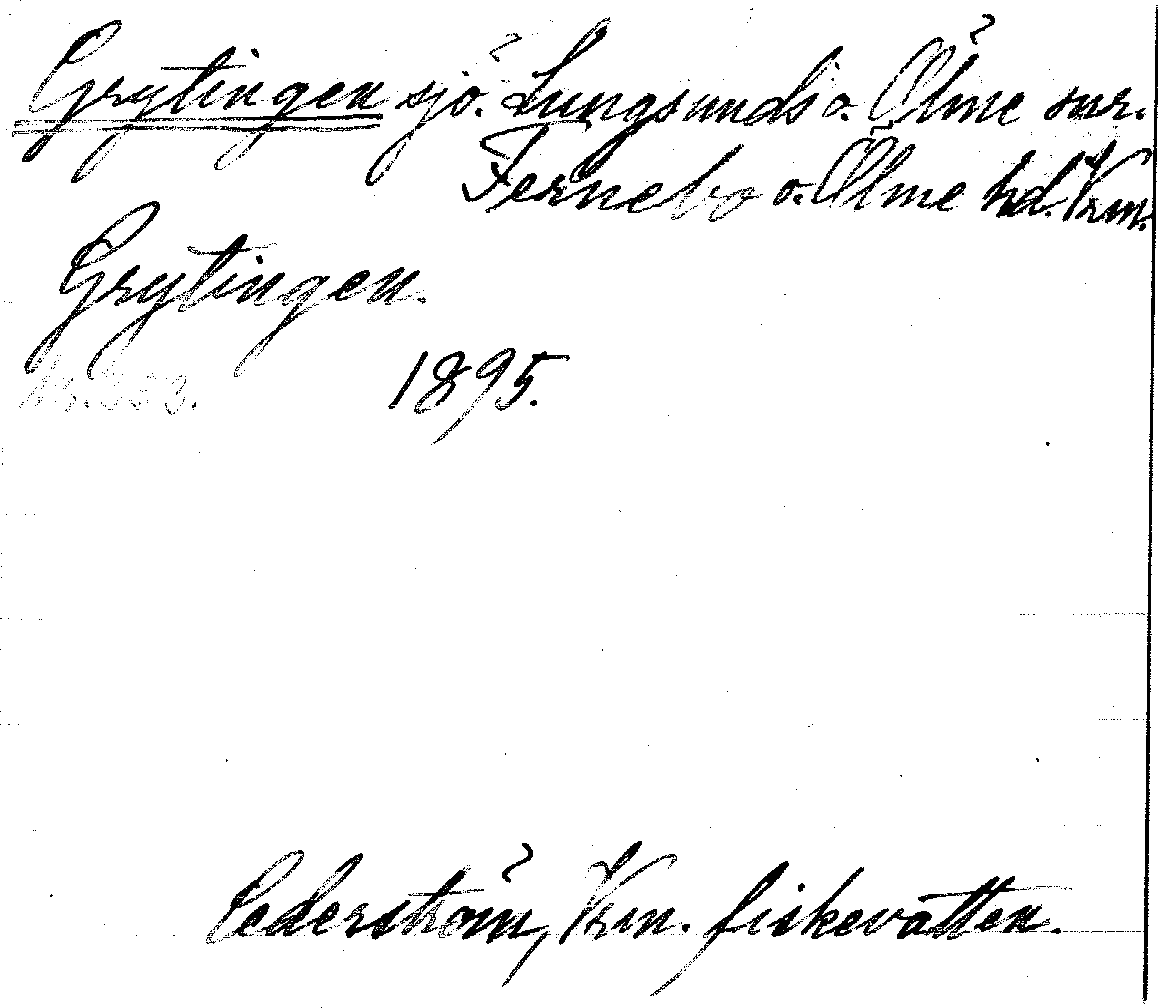 Grytingen sjö. Lungsunds o. Ölme snr.
Fernebo o. Ölme hd. Vrm.
Grytingen.
1895.
Cederström, Vrm. fiskevatten.